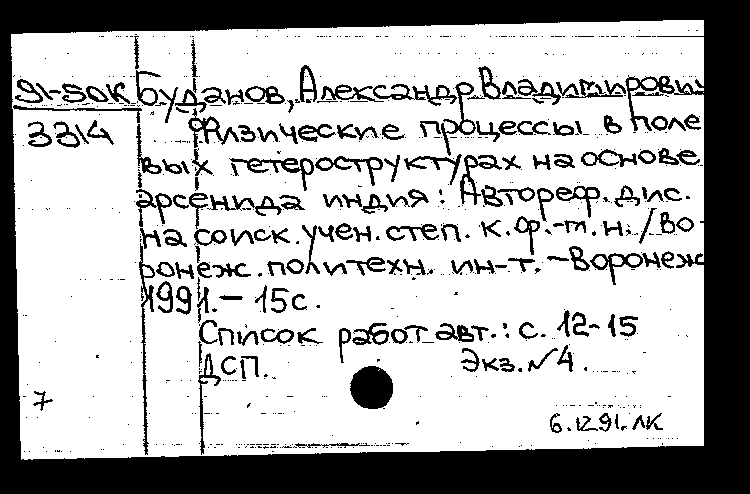 91-50К Буданов, Александр Владимирович
3314 Физические процессы в поле
вых гетероструктурах на основе
арсенида индия: Автореф. дис.
на соиск. учен. степ. к.ф.-т.н./Во-
ронеж. политехн. ин-т. -Воронеж
1991.- 15с.
Список работ авт.: с. 12-15
ДСП. Экз.№4.
7
6.12.91. ЛК